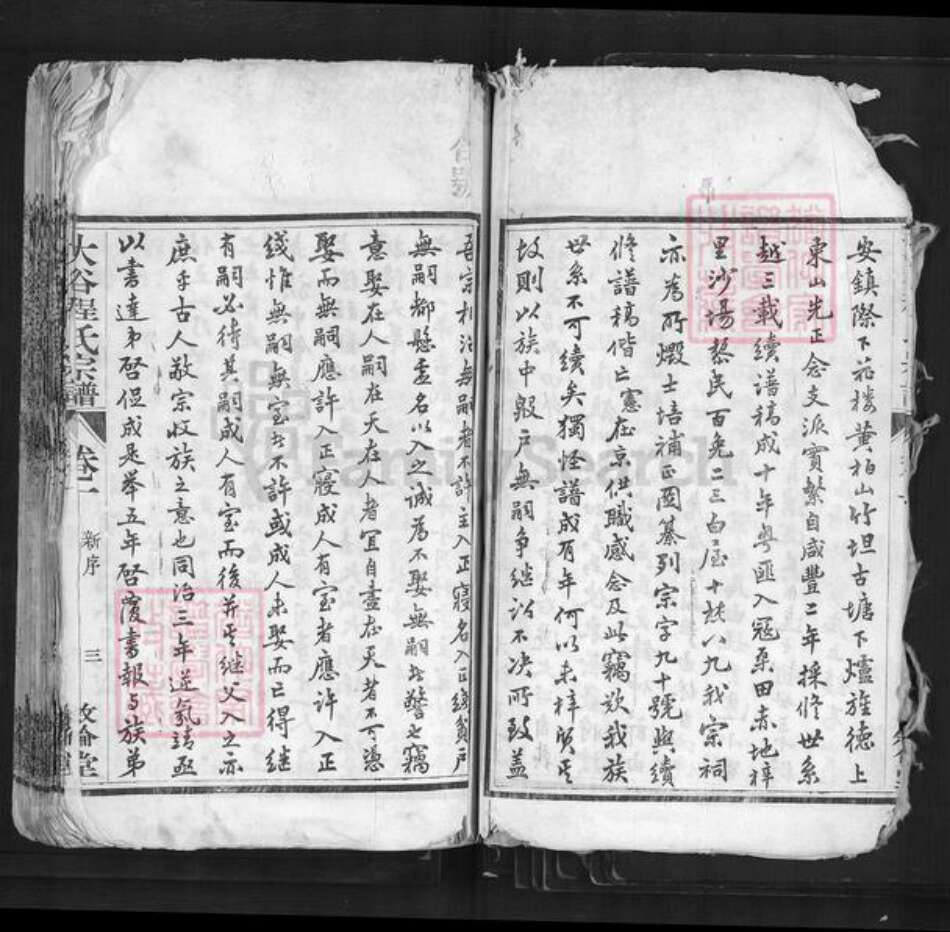 安鎮際下花樓黃柏山竹坦古塘下爐旌德上
東山先正念支派實繁自咸豐二年採修世系
越三載續譜稿成十年粵匪入寇桑田赤地梓
里沙場黎民百免二三白屋十祑八九我宗祠
亦為所燬士培補正團纂列宗字九十號與續
修譜稿偕亡憲在京供職感念及此竊欲我族
世系不可續矣獨怪譜成有年何以未梓質其
故則以族中殷戶無嗣爭継訟不決所致蓋
吾宗相沿無嗣者不許主入正寢名入正綫貧戶
無嗣都懸虛名以入之誠為不娶無嗣者警也竊
意娶在人嗣在天在人者宜自盡在天者不可憑
娶而無嗣應許入正寢成人有室者應許入正
綫惟無嗣無室者不許或成人未娶而亡得継
有嗣必待其嗣成人有室而後并其継父入之亦
庶乎古人敬宗收族之意也同治三年逆氛靖亟
以書達弟啓促成是举五年啓覆書報与族弟
大谷程氏宗譜 卷一 新序 三 敘倫堂
FamilySearch